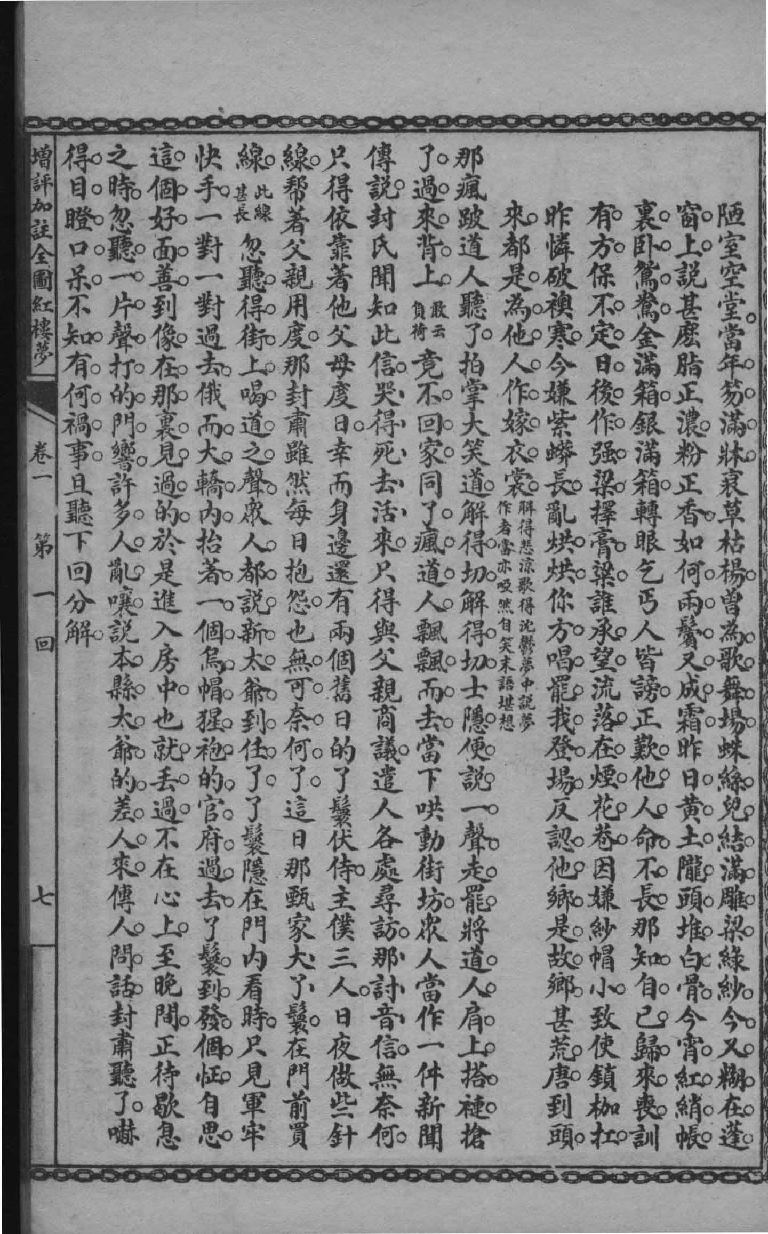 陋室空堂當年笏滿牀衰草枯楊曾為歌舞場蛛絲兒結滿雕梁綠紗今又糊在蓬
窗上說甚麽脂正濃粉正香如何兩鬢又成霜昨日黃土隴頭堆白骨今宵紅綃帳
裏卧鴛鴦金滿箱銀滿箱轉眼乞丐人皆謗正歎他人命不長那知自己歸來喪訓
有方保不定日後作强梁擇膏粱誰承望流落在煙花巷因嫌紗帽小致使鎖枷扛
昨憐破襖寒今嫌紫蟒長亂烘烘你方唱罷我登場反認他鄉是故鄉甚荒唐到頭
來都是為他人作嫁衣裳解得悲涼歌得沈鬱夢中說夢作者當亦啞然自笑末語堪想
那瘋跛道人聽了拍掌大笑道解得切解得切士隱便說一聲走罷將道人肩上搭褳搶
了過來背上敢云負荷竟不回家同了瘋道人飄飄而去當下哄動街坊衆人當作一件新聞
傳說封氏聞知此信哭得死去活來只得與父親商議遣人各處尋訪那討音信無奈何
只得依靠著他父母度日幸而身邊還有兩個舊日的丫鬟伏侍主僕三人日夜做些針
線帮著父親用度那封肅雖然每日抱怨也無可奈何了這日那甄家大丫鬟在門前買
線此線甚長忽聽得街上喝道之聲衆人都說新太爺到任了丫鬟隱在門內看時只見軍牢
快手一對一對過去俄而大轎內抬著一個烏帽猩袍的官府過去了鬟到發個怔自思
這個好面善到像在那裏見過的於是進入房中也就丟過不在心上至晚間正待歇息
之時忽聽一片聲打的門響許多人亂嚷說本縣太爺的差人來傳人問話封肅聽了嚇
得目瞪口呆不知有何禍事且聽下回分解
增評加註全圖紅樓夢
卷一
第一回
七